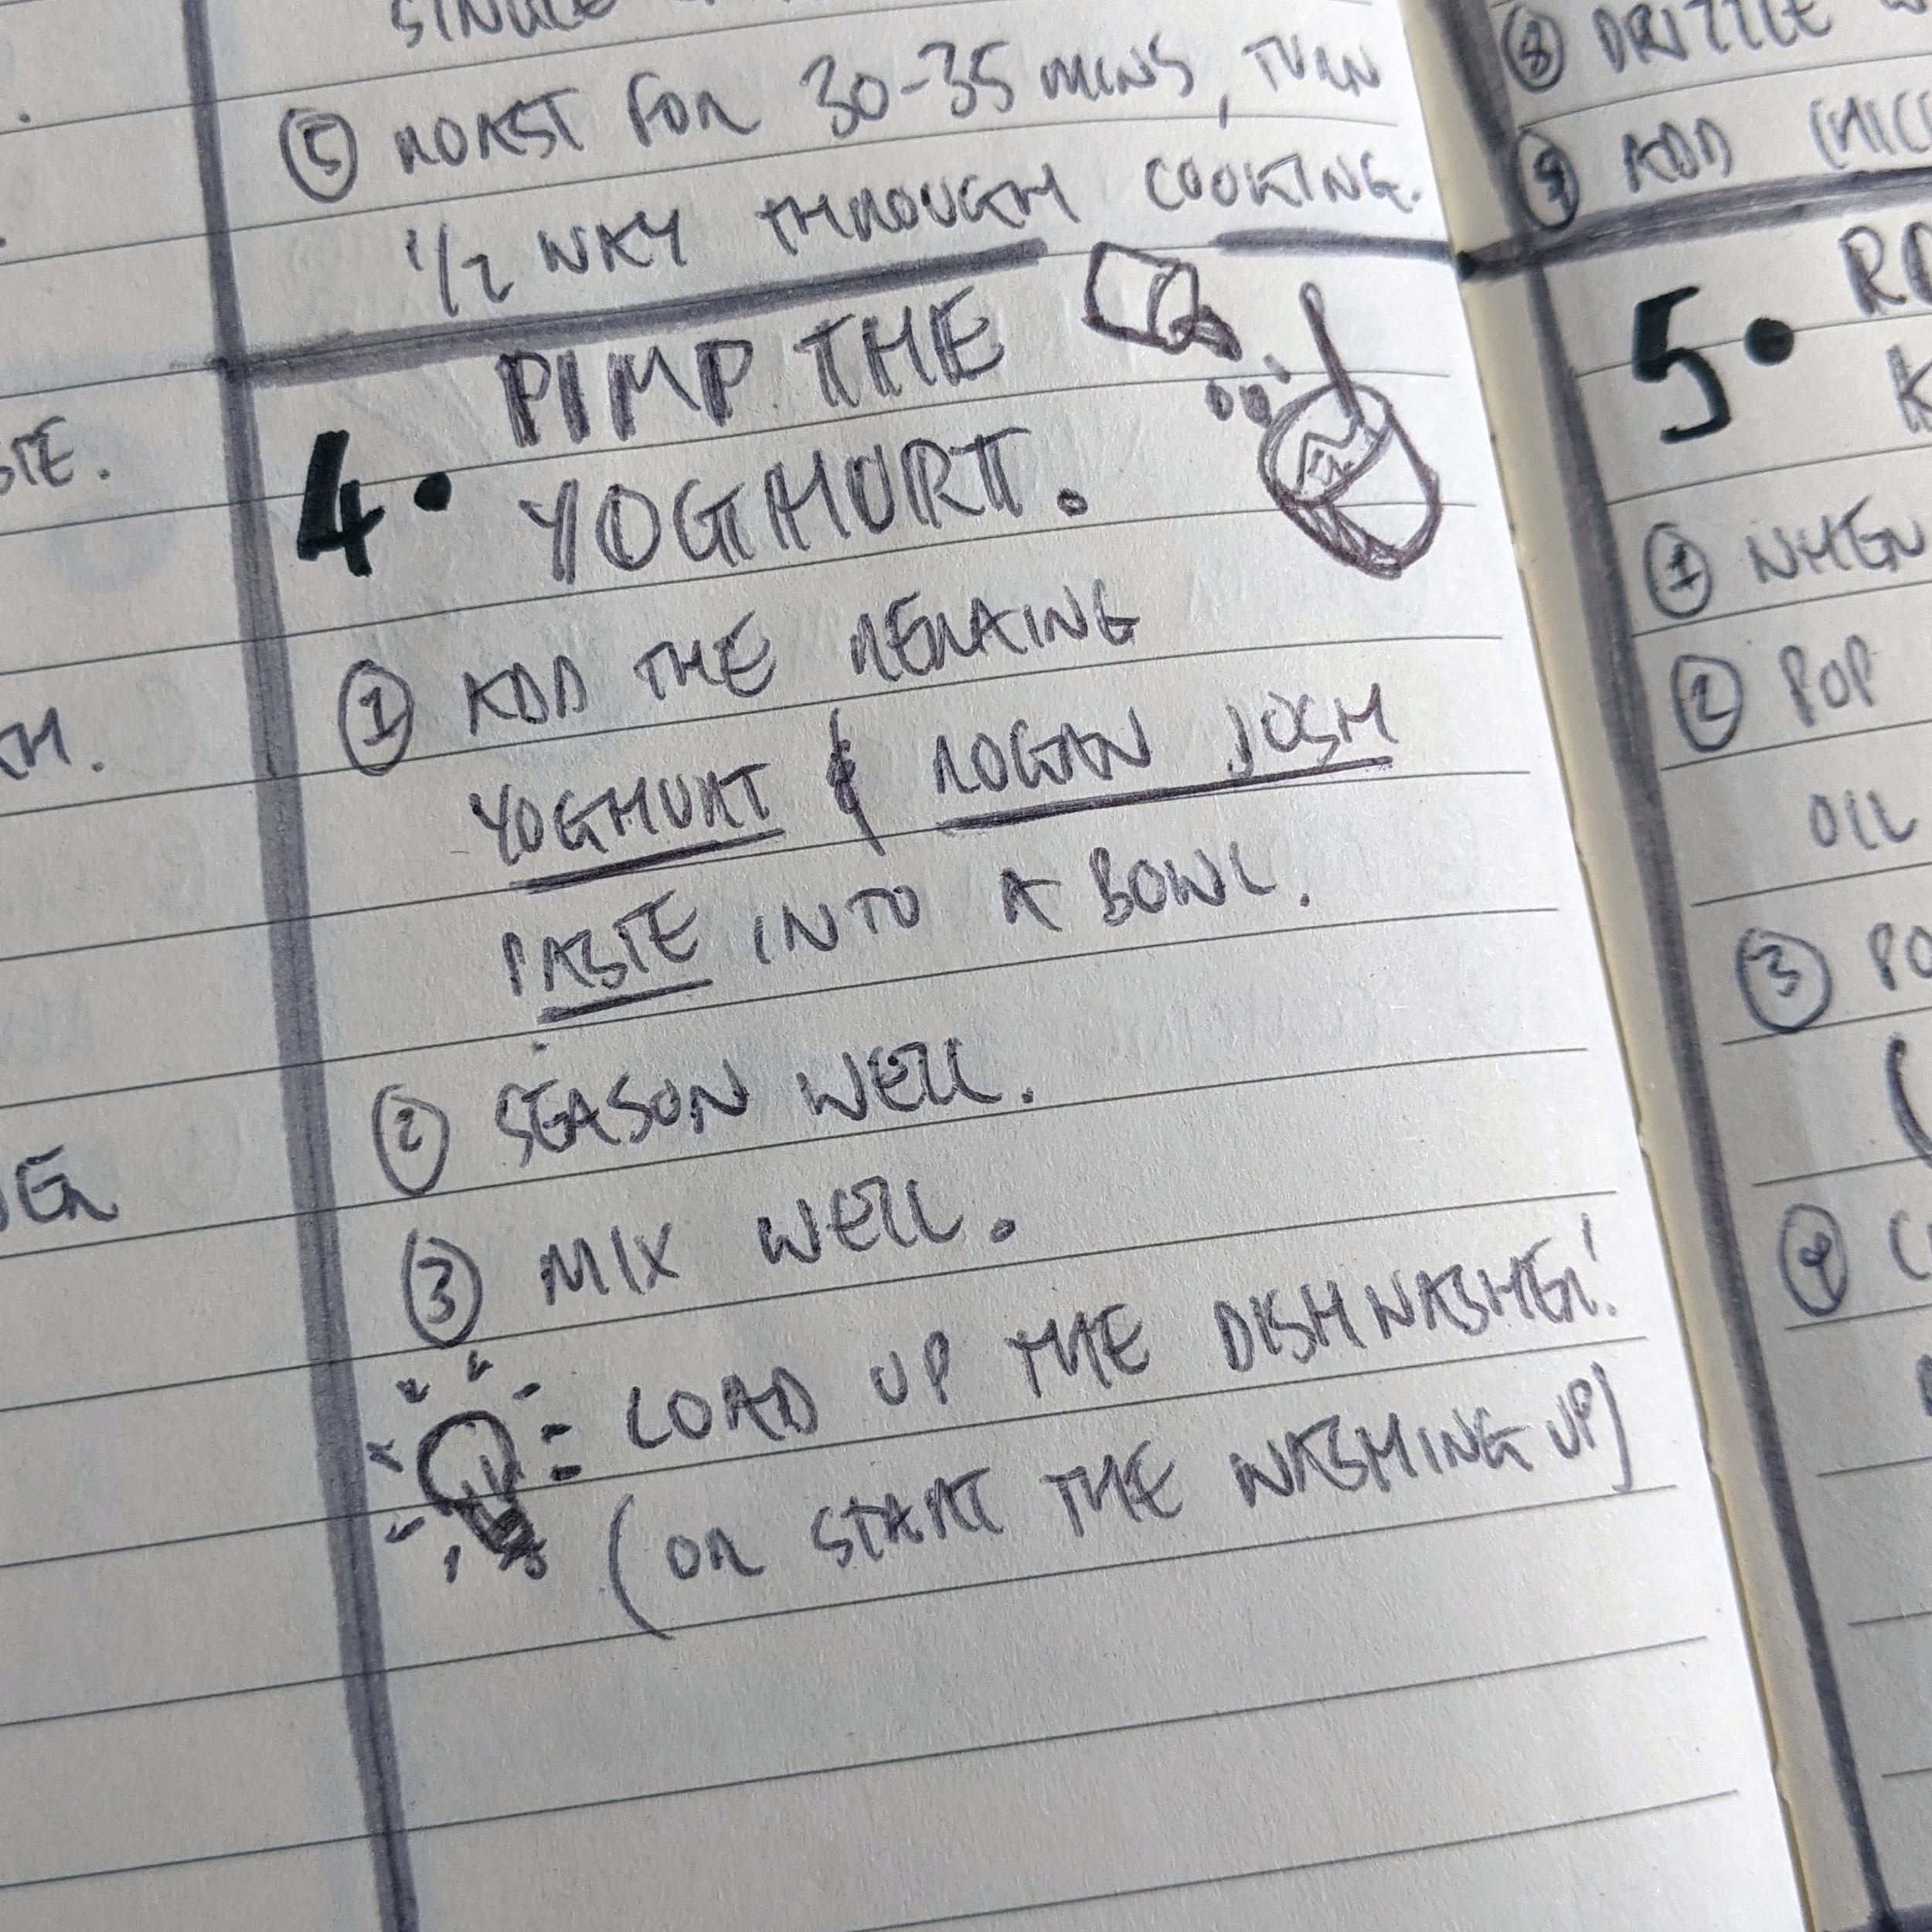 ⑤ ROAST FOR 30-35 MINS, TURN
1/2 WAY THROUGH COOKING.
4. PIMP THE
YOGHURT.
① ADD THE REMAING
YOGHURT & ROGAN JOSH
PASTE INTO A BOWL.
② SEASON WELL.
③ MIX WELL.
LOAD UP THE DISHWASHER!
(OR START THE WASHING UP)
⑧ DRIZZLE
⑨ ADD
5.
① WHEN
② POP
OIL
③
④